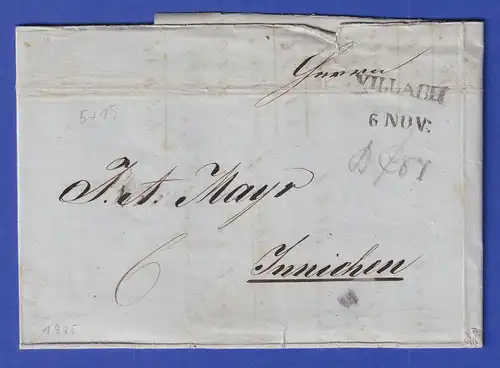 Herrn
VILLACH
6 NOV:
5+15
J. A. Mayr
6
Innichen
1845